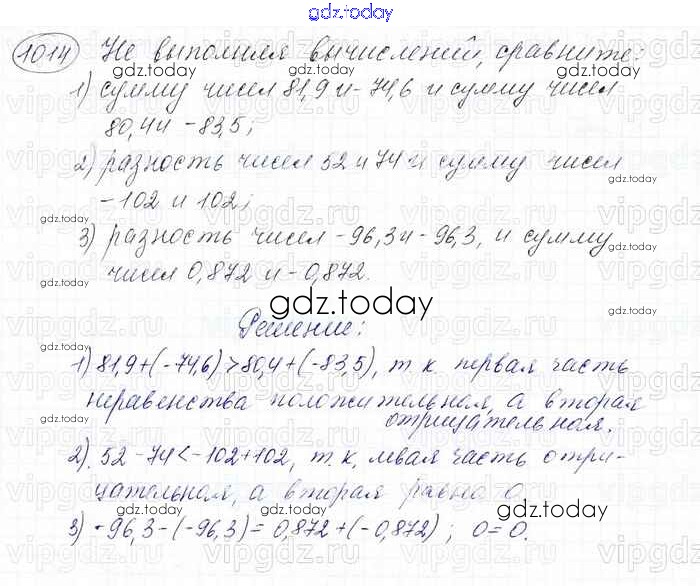 gdz.today
1014 Не выполняя вычислений, сравните:
1) сумму чисел 81,9 и -74,6 и сумму чисел
80,4 и -83,5;
2) разность чисел 52 и 74 и сумму чисел
-102 и 102;
3) разность чисел -96,3 и -96,3, и сумму
чисел 0,872 и -0,872.
gdz.today
Решение:
1) 81,9+(-74,6)>80,4+(-83,5), т.к. первая часть
неравенства положительная, а вторая
отрицательная.
2). 52-74<-102+102, т.к, левая часть отри-
цательная, а вторая равна 0.
3) -96,3-(-96,3)=0,872+(-0,872); 0=0.